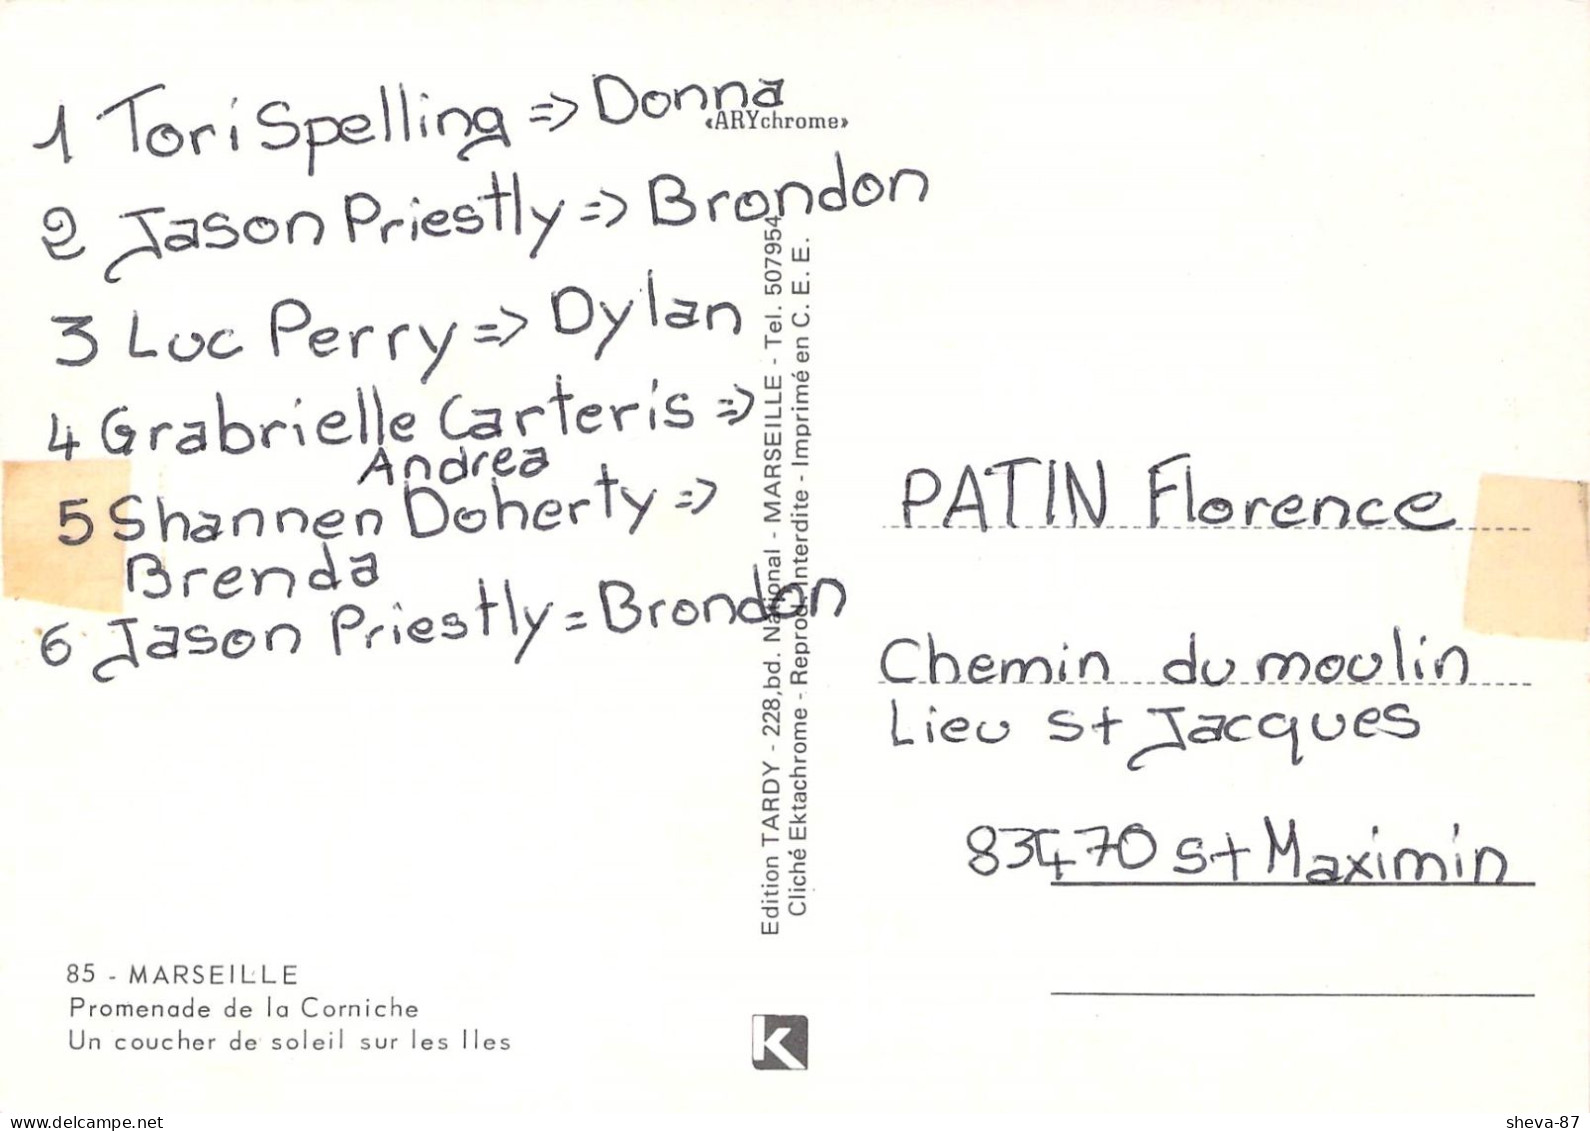 1 Tori Spelling => Donna
«ARYchrome»
2 Jason Priestly => Brondon
3 Luc Perry => Dylan
4 Grabrielle Carteris =>
Andrea
5 Shannen Doherty =>
Brenda
6 Jason Priestly = Brondon
85 - MARSEILLE
Promenade de la Corniche
Un coucher de soleil sur les Iles
Edition TARDY - 228, bd. National - MARSEILLE - Tel. 507954
Cliché Ektachrome - Reprod. Interdite - Imprimé en C. E. E.
K
PATIN Florence
Chemin du moulin
Lieu St Jacques
83470 St Maximin
www.delcampe.net
sheva-87